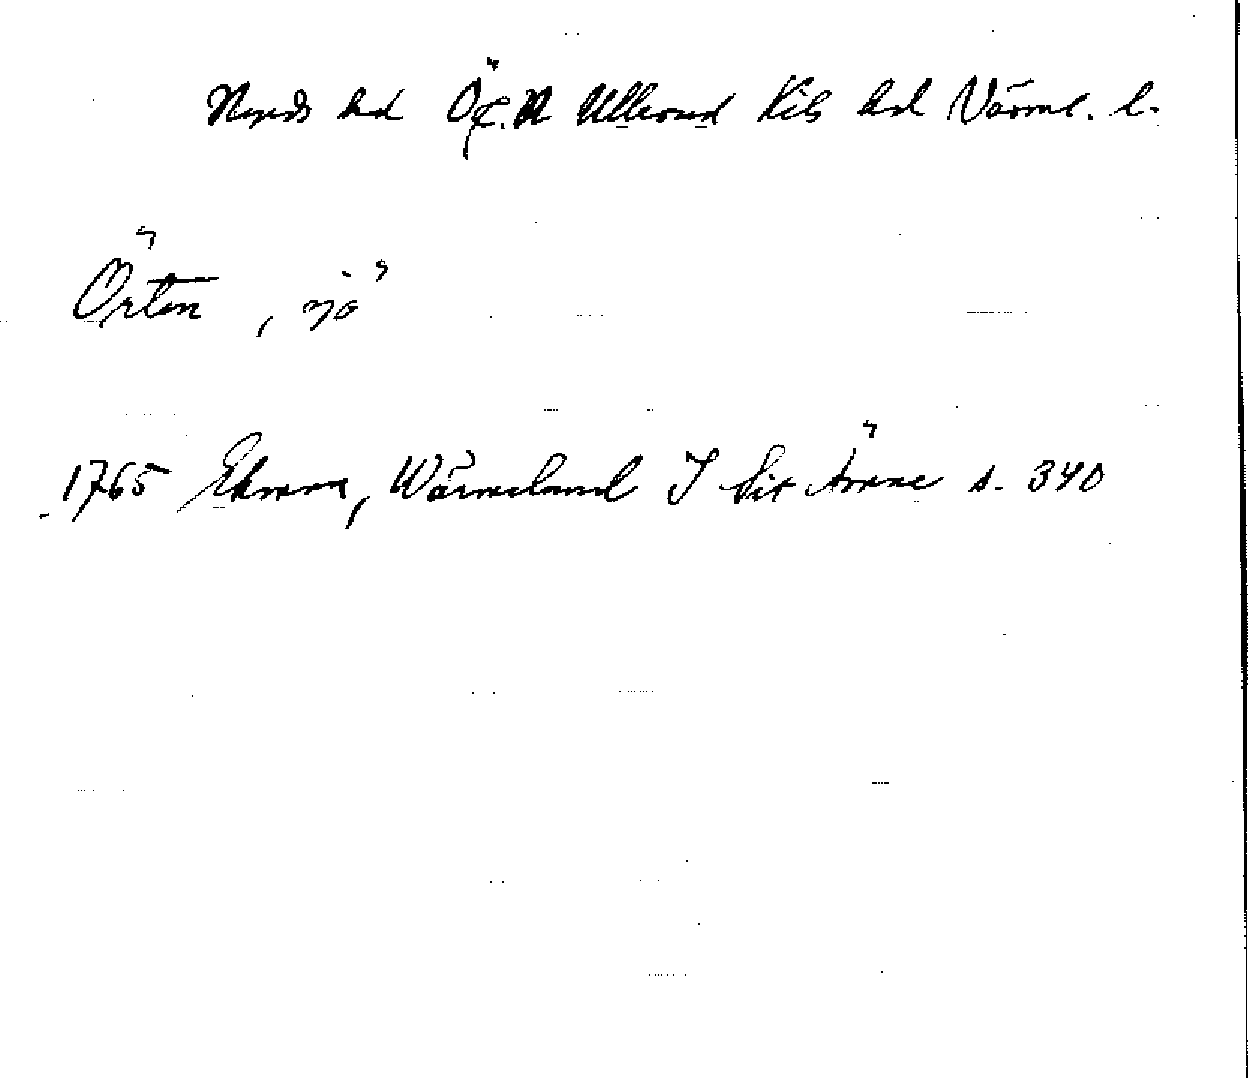 Nyeds hd Ö. N Ullerud Kils hd Värml. l.
Örten, sjö
1765 Ekmans, Wärmeland I sin ämne s. 340